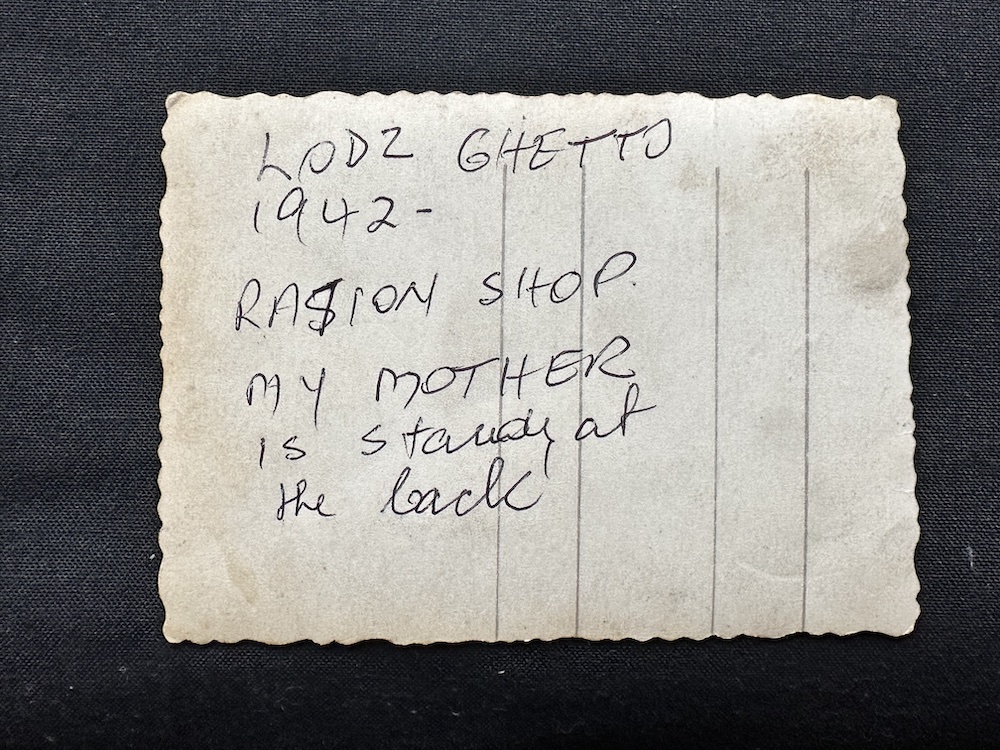 LODZ GHETTO
1942-
RATION SHOP.
MY MOTHER
is standing at
the back